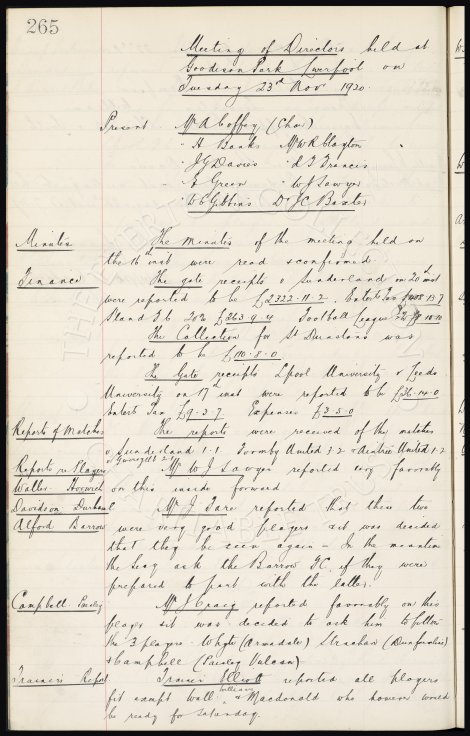 265
Meeting of Directors held at
Goodison Park Liverpool on
Tuesday 23rd Nov 1920.
Present Mr A Coffey (Chair)
" H Banks Mr W R Clayton
" J G Davies " R T Francis
" E Green " W J Sawyer
" W E Gibbins Dr J C Baxter
Minutes The minutes of the meeting held on
the 16th inst were read & confirmed.
Finance The gate receipts v Sunderland on 20th inst
were reported to be £2322.11.2. Entert Tax
Stand Tks 202 £263.9.4 Football League
The Collection for St Dunstans was
reported to be £110.8.0
The Gate receipts Lpool University v Leeds
University on 17th inst were reported to be £36.14.0
Entert Tax £9.3.7 Expenses £3.5.0
Reports of Matches The reports were received of the matches
v Sunderland 1-1. Formby United 3-2 v Aintree United 1-2
Reports re Players Mr W J Sawyer reported very favorably
Waller Horwich on this inside forward
Davidson Durham Mr J Fare reported that these two
Alford Barrow were very good players & it was decided
that they be seen again - In the meantime
the Secy ask the Barrow FC. if they were
prepared to part with the latter.
Campbell Paisley Mr J Craig reported favorably on this
player & it was decided to ask him to follow
the 3 players - Whyte (Armadale) Strachan (Dunfermline)
& Campbell (Paisley Vulcan)
Trainers Report Trainer Elliott reported all players
fit except Wall, Williams & Macdonald who however would
be ready for Saturday.